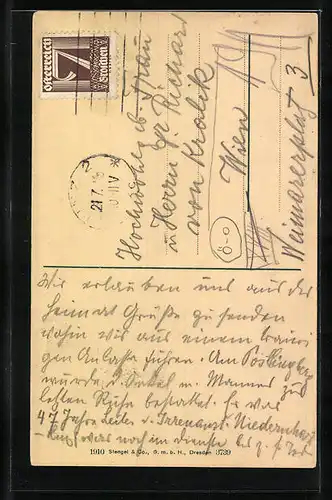 österreich
7
Groschen
2
21.7.
Hochwohlgeb. Frau
u Herrn Dr. Richard
von Kralik
Wien
Weimarerplatz 3
Wir erlauben uns aus der
Heimat Grüße zu senden
wohin wir aus einem trauri
gen Anlasse fuhren. Am Pöstlingberg
wurde d. Onkel m. Mannes zur
letzten Ruhe bestattet. Er war
47 Jahre Leiter d. Irrenanst. Niedernhart
war noch im Dienste bis z. Tod
1910 Stengel & Co., G. m. b. H., Dresden 3739